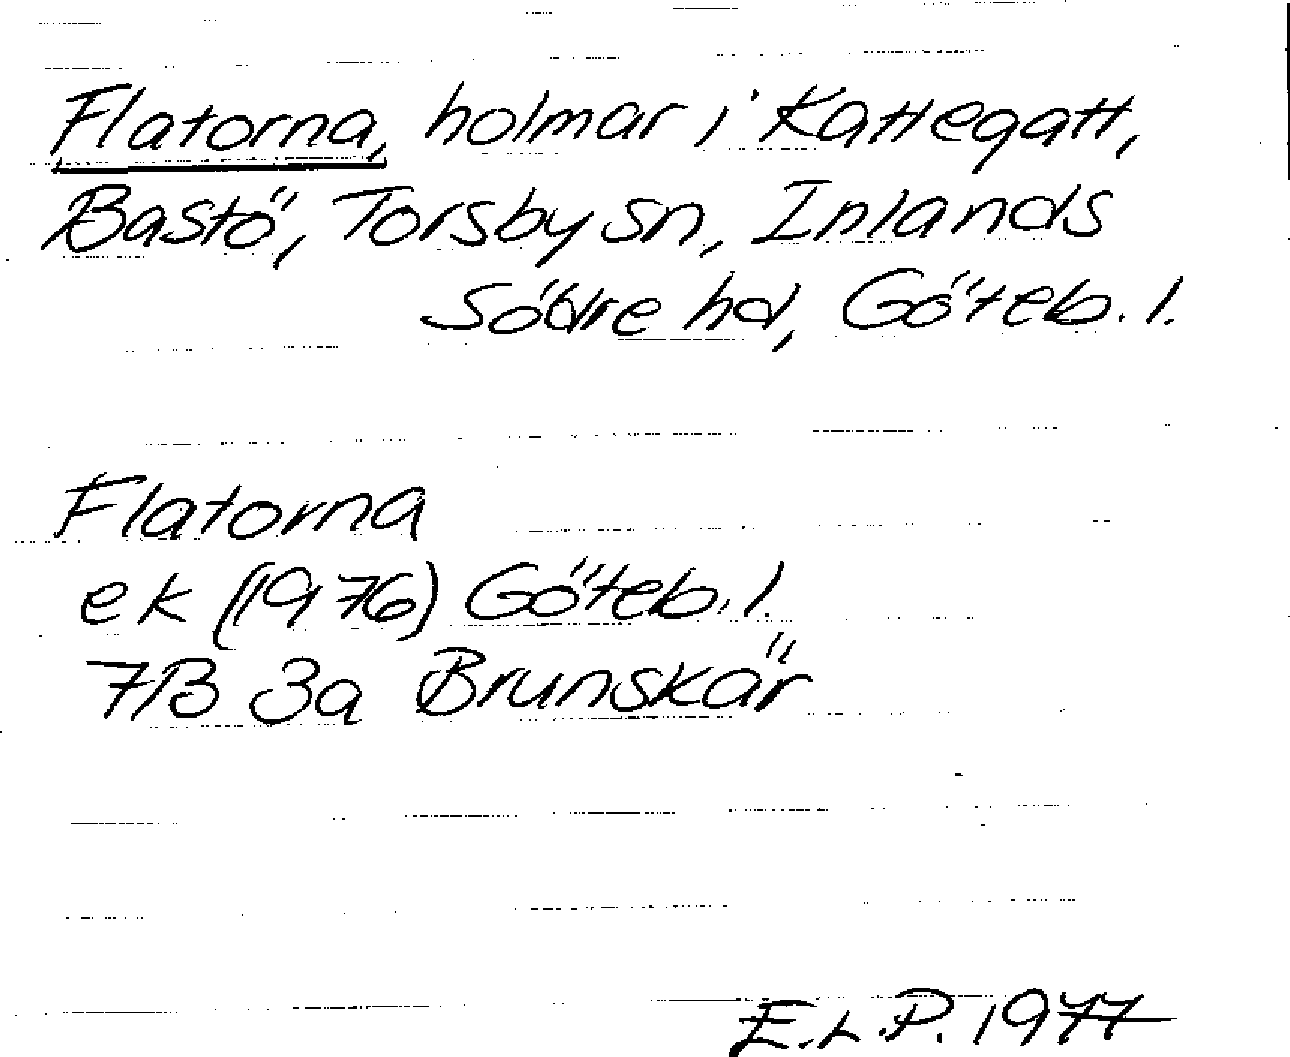 Flatorna, holmar i Kattegatt,
Bastö, Torsby sn, Inlands
Södre hd, Göteb. l.
Flatorna
ek (1976) Göteb. l.
7B 3a Brunskär
E.L.P. 1977